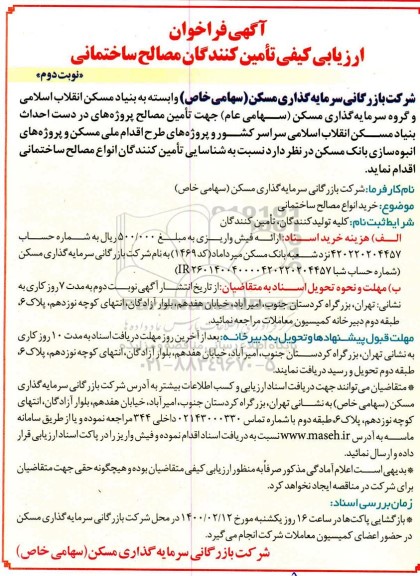 آگهی فراخوان
ارزیابی کیفی تأمین کنندگان مصالح ساختمانی
«نوبت دوم»
شرکت بازرگانی سرمایه گذاری مسکن (سهامی خاص) وابسته به بنیاد مسکن انقلاب اسلامی
و گروه سرمایه گذاری مسکن (سهامی عام) جهت تأمین مصالح پروژه‌های در دست احداث
بنیاد مسکن انقلاب اسلامی سراسر کشور و پروژه‌های طرح اقدام ملی مسکن و پروژه‌های
انبوه سازی بانک مسکن در نظر دارد نسبت به شناسایی تأمین کنندگان انواع مصالح ساختمانی
اقدام نماید.
نام کارفرما: شرکت بازرگانی سرمایه گذاری مسکن (سهامی خاص)
موضوع: خرید انواع مصالح ساختمانی
شرایط ثبت نام: کلیه تولیدکنندگان، تأمین کنندگان
الف) هزینه خرید اسناد: ارائه فیش واریزی به مبلغ ۵۰۰/۰۰۰ ریال به شماره حساب
۴۲۰۲۲۰۲۰۴۴۵۷ نزد شعبه بانک مسکن میرداماد (کد ۱۴۶۹) به نام شرکت بازرگانی سرمایه گذاری مسکن
(شماره حساب شبا
ب) مهلت و نحوه تحویل اسناد به متقاضیان: از تاریخ انتشار آگهی نوبت دوم به مدت ۷ روز کاری به
نشانی: تهران، بزرگراه کردستان جنوب، امیرآباد، خیابان هفدهم، بلوار آزادگان، انتهای کوچه نوزدهم، پلاک ۶،
طبقه دوم دبیرخانه کمیسیون معاملات مراجعه نمائید.
مهلت قبول پیشنهادها و تحویل به دبیرخانه: بعد از آخرین روز مهلت دریافت اسناد به مدت ۱۰ روز کاری
به نشانی تهران، بزرگراه کردستان جنوب، امیرآباد، خیابان هفدهم، بلوار آزادگان، انتهای کوچه نوزدهم، پلاک ۶،
طبقه دوم تحویل و رسید دریافت نمایند.
* متقاضیان می‌توانند جهت دریافت اسناد ارزیابی و کسب اطلاعات بیشتر به آدرس شرکت بازرگانی سرمایه گذاری
مسکن (سهامی خاص) به نشانی تهران، بزرگراه کردستان جنوب، امیرآباد، خیابان هفدهم، بلوار آزادگان، انتهای
کوچه نوزدهم، پلاک ۶، طبقه دوم با شماره تماس ۰۲۱۴۳۰۰۰۳۳۰ داخلی ۳۴۴ مراجعه نموده و یا از طریق سامانه
ماسه به آدرس www.maseh.ir نسبت به دریافت اسناد اقدام نموده و فیش واریز را در پاکت اسناد ارزیابی قرار
داده و ارسال نمائید.
* بدیهی است اعلام آمادگی مذکور صرفاً به منظور ارزیابی کیفی متقاضیان بوده و هیچگونه حقی جهت متقاضیان
برای شرکت در مناقصه ایجاد نخواهد کرد.
زمان بررسی اسناد:
* بازگشایی پاکت‌ها در ساعت ۱۶ روز یکشنبه مورخ ۱۴۰۰/۰۲/۱۲ در محل شرکت بازرگانی سرمایه گذاری مسکن
در حضور اعضای کمیسیون معاملات شرکت انجام می گیرد.
شرکت بازرگانی سرمایه گذاری مسکن (سهامی خاص)